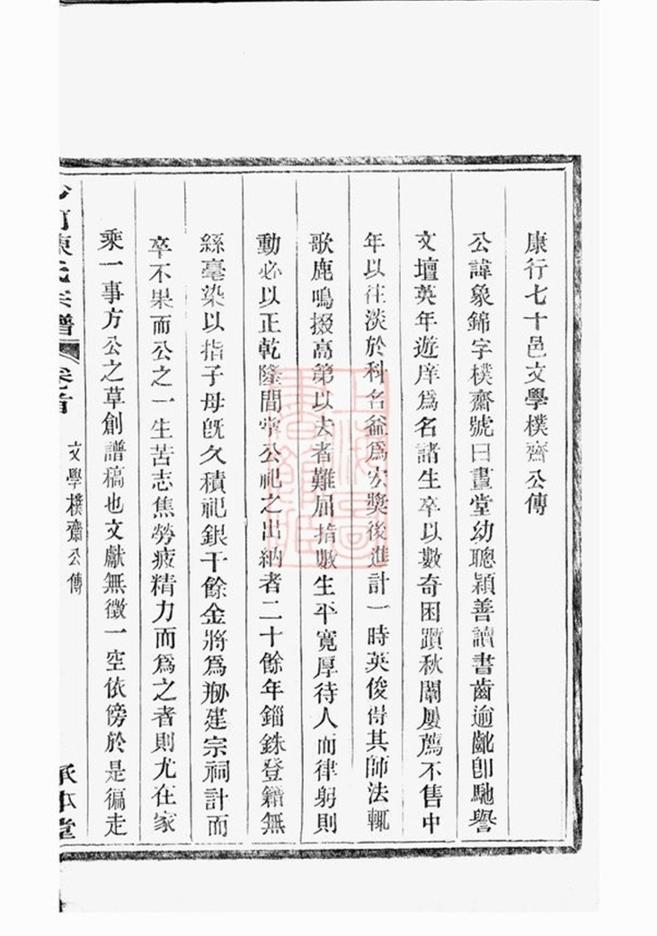 康行七十邑文學樸齋公傳
公諱象錦字樸齋號曰晝堂幼聰穎善讀書齒逾齔卽馳譽
文壇英年遊庠爲名諸生卒以數奇困躓秋闈屢薦不售中
年以往淡於科名益爲宏獎後進計一時英俊得其師法輒
歌鹿鳴掇高第以去者難屈指數生平寬厚待人而律躬則
動必以正乾隆間掌公祀之出納者二十餘年錙銖登籍無
絲毫染以指子母旣久積祀銀千餘金將爲刱建宗祠計而
卒不果而公之一生苦志焦勞疲精力而爲之者則尤在家
乘一事方公之草創譜稿也文獻無徵一空依傍於是徧走
陳氏宗譜 卷首 文學樸齋公傳 承本堂
上海圖書館藏